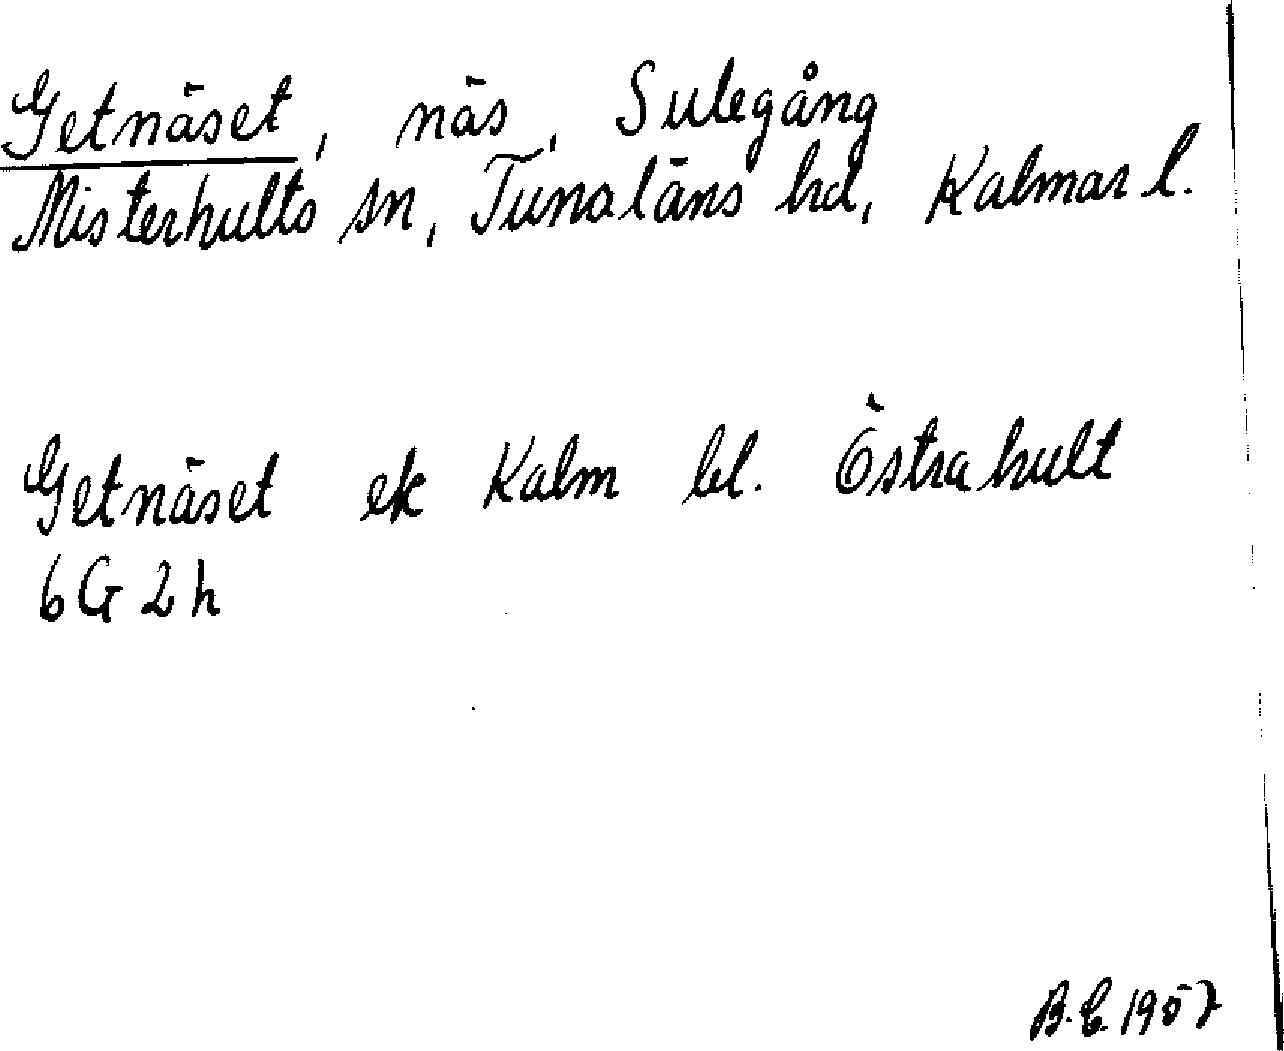 Getnäset, näs, Sulegång
Misterhults sn, Tunaläns hd, Kalmar l.
Getnäset ek Kalm bl. Östrahult
6G 2h
B.E. 1957